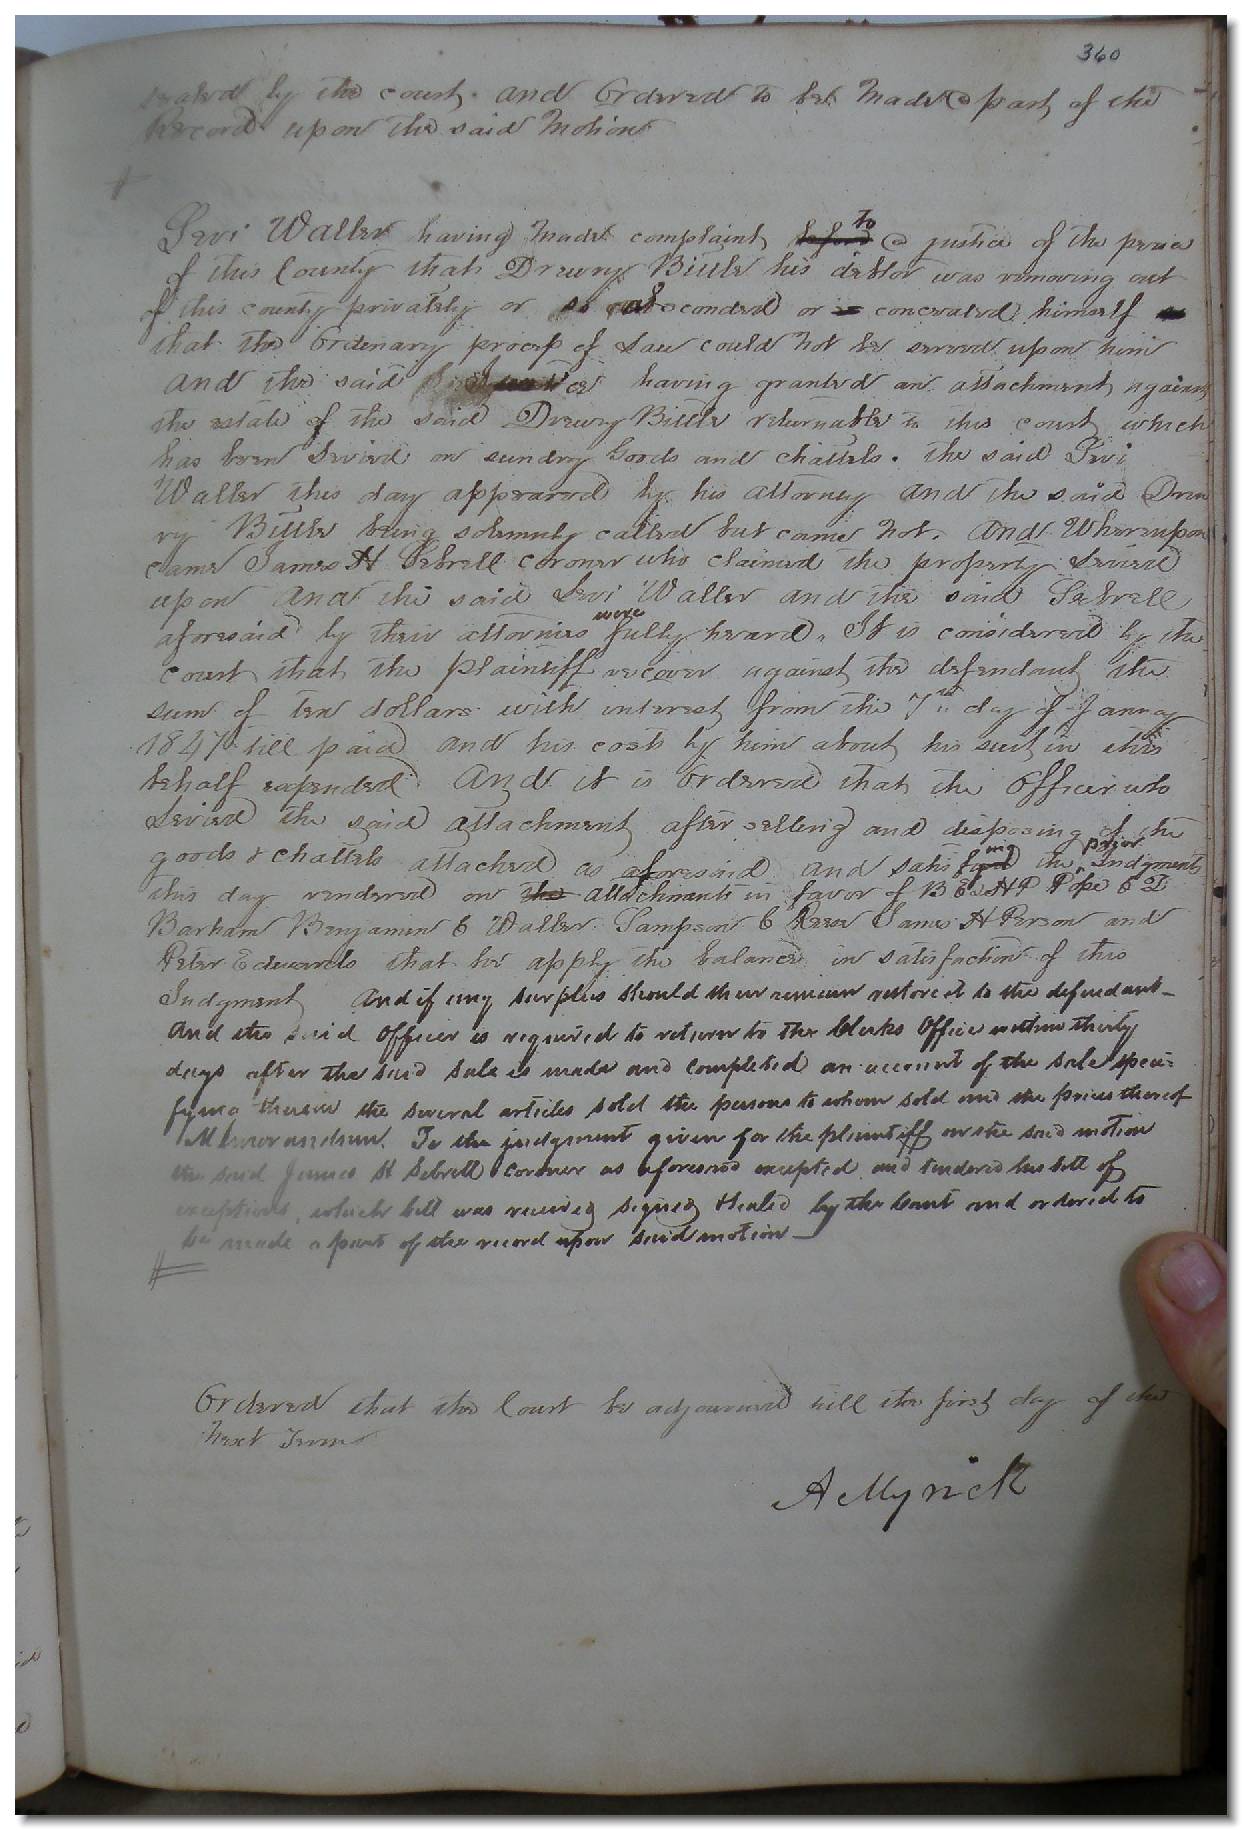 360
sealed by the court. and Ordered to be made a part of the
Record upon the said Motion
Levi Waller having made complaint to a justice of the peace
of this County that Drewry Bittle his debtor was removing out
of this county privately or so absconded or concealed himself
that the Ordenary process of Law could not be served upon him
and the said having granted an attachment against
the estate of the said Drewry Bittle returnable to this court which
has been Levied on sundry Goods and chattels. the said Levi
Waller this day appeared by his attorney and the said Drew
ry Bittle being solemnly called but came not. and Whereupon
came James H Sebrell coroner who claimed the property Levied
upon And the said Levi Waller and the said Sebrell
aforesaid by their attornies were fully heard. It is considered by the
court that the plaintiff recover against the defendant the
sum of ten dollars with interest from the 7th day of Januay
1847 till paid and his costs by him about his suit in this
behalf expended And it is Ordered that the Officer who
Levied the said attachment after selling and disposing of the
goods & chattels attached as aforesaid and satisfying the prior Judgments
this day rendered on the attachments in favor of B E & H P Pope E T
Barham Benjamin E Waller Sampson C Reese James H Person and
Peter Edwards that he apply the balance in satisfaction of this
Judgment And if any surplus should then remain restore it to the defendant_
And the said Officer is required to return to the Clerks Office within thirty
days after the said sale is made and completed an account of the sale speci=
fying therein the several articles sold the persons to whom sold and the prices thereof
Memorandum. To the judgment given for the plaintiff on the said motion
the said James H Sebrell coroner as aforesaid excepted and tendered his bill of
exceptions, which bill was received signed & sealed by the Court and ordered to
be made a part of the record upon said motion_
Ordered that the Court be adjourned till the first day of the
Next Term
A Myrick